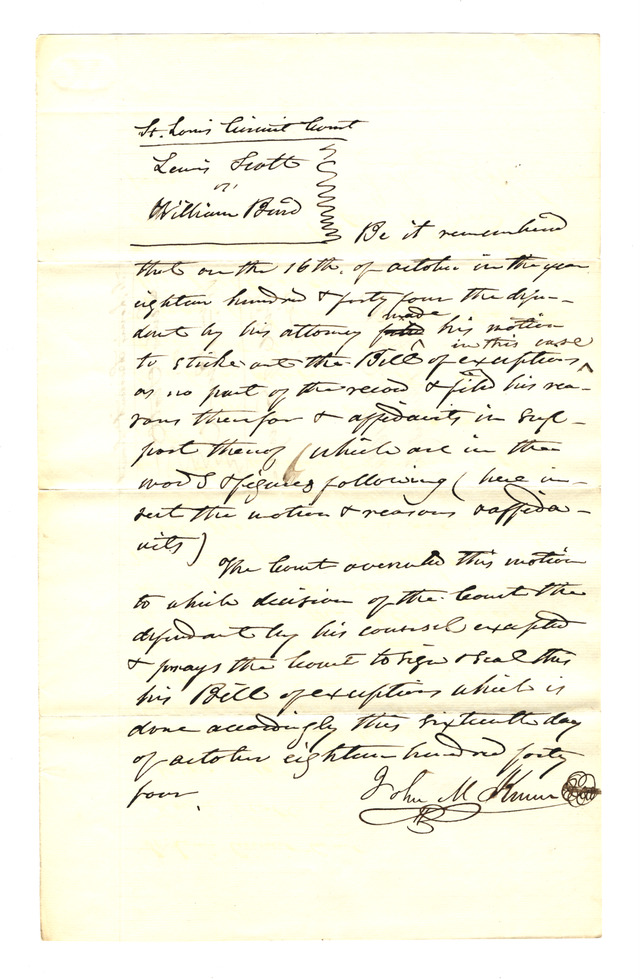 St. Louis Circuit Court
Lewis Scott
vs
William Burd
Be it remembered
that on the 16th. of october in the year
eighteen hundred & forty four the defen-
dant by his attorney made his motion
to strike out the Bill of exceptions in this case
as no part of the record & filed his rea-
sons therefor & affidavits in sup-
port thereof (which are in the
words & figures following (here in-
sert the motion & reasons & affida-
vits)
The Court overruled this motion
to which decision of the Court the
defendant by his counsel excepted
& prays the Court to sign & seal this
his Bill of exceptions which is
done accordingly this sixteenth day
of october eighteen hundred forty
four.
John M Krum